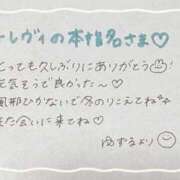 レヴィの本指名さま♡
とっても久しぶりにありがとう
元気そうで良かった〜♡
風邪ひかないで冬のりこえてね
また会いに来てね♡
ゆずるより